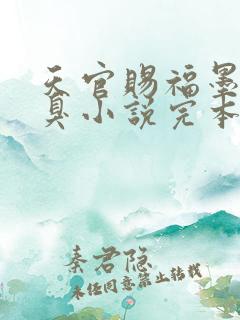 天官赐福墨
真小说完本
秦君隐
未经同意禁止转载